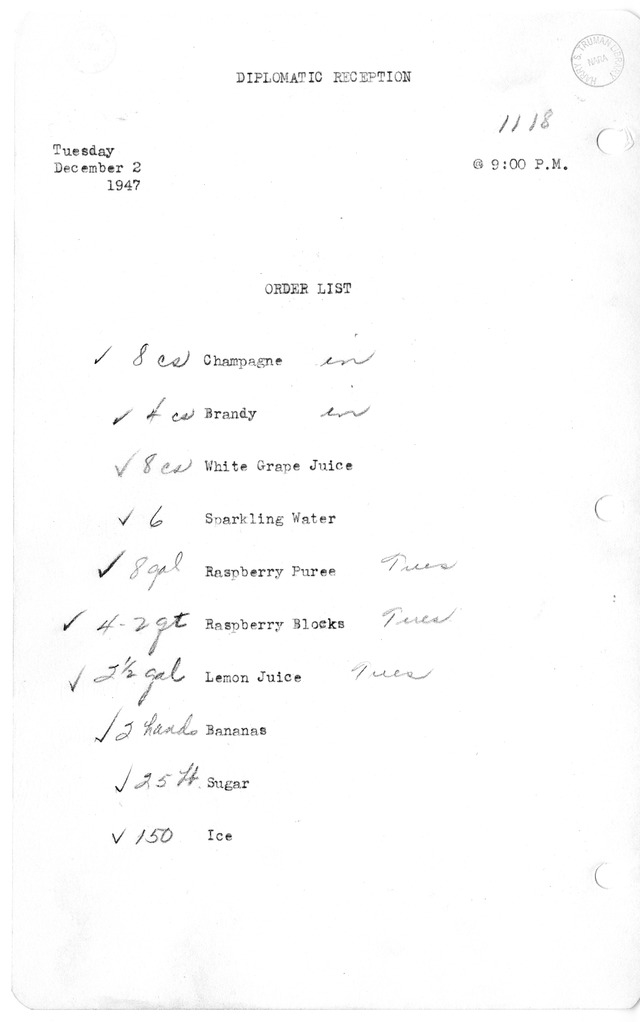 HARRY S. TRUMAN LIBRARY
NARA
DIPLOMATIC RECEPTION
1118
Tuesday
December 2 @ 9:00 P.M.
1947
ORDER LIST
✓ 8 cs Champagne in
✓ 4 cs Brandy in
✓ 8 cs White Grape Juice
✓ 6 Sparkling Water
✓ 8 gal Raspberry Puree Tues
✓ 4-2 qt Raspberry Blocks Tues
✓ 2½ gal Lemon Juice Tues
✓ 2 hands Bananas
✓ 25 # Sugar
✓ 150 Ice